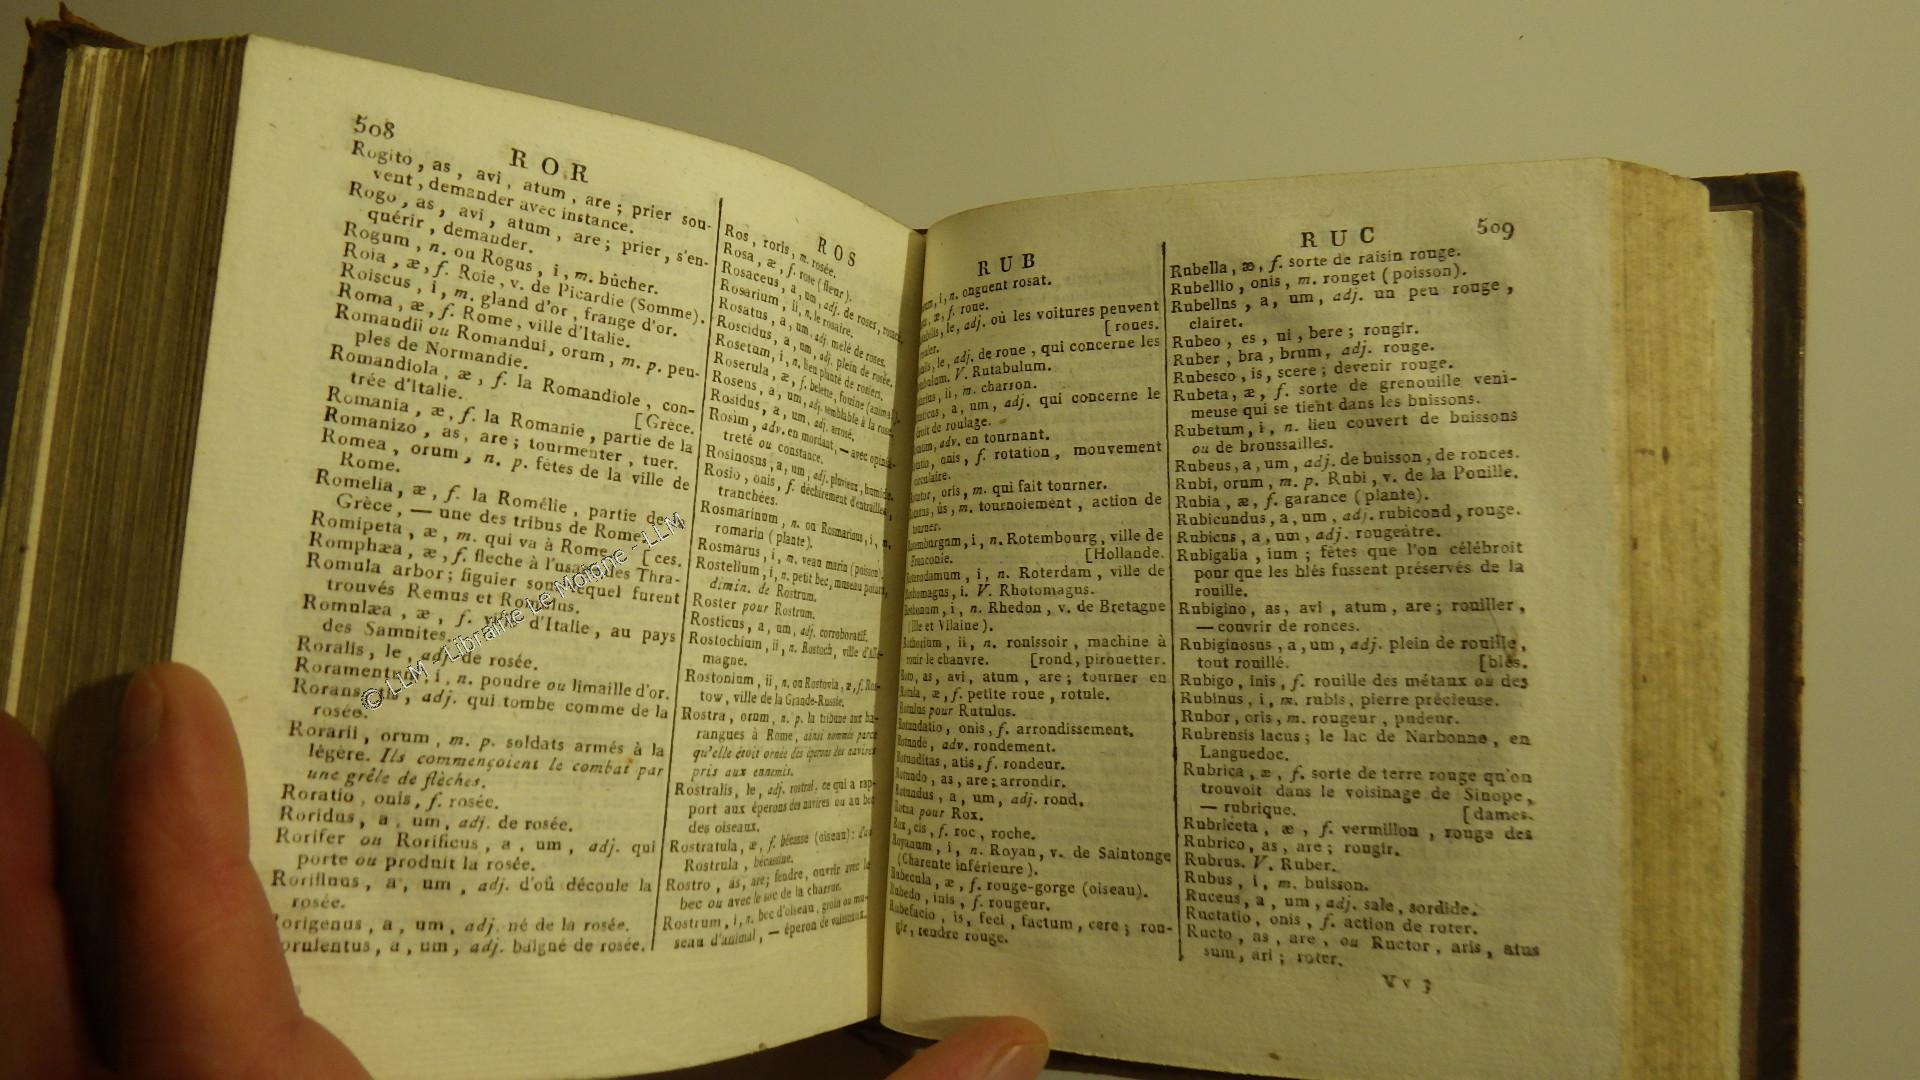 508
ROR
Rogito, as, avi, atum, are; prier sou-
vent, demander avec instance.
Rogo, as, avi, atum, are; prier, s'en-
quérir, demander.
Rogum, n. ou Rogus, i, m. bûcher.
Roia, æ, f. Roie, v. de Picardie (Somme).
Roiscus, i, m. gland d'or, frange d'or.
Roma, æ, f. Rome, ville d'Italie.
Romandii ou Romandui, orum, m. p. peu-
ples de Normandie.
Romandiola, æ, f. la Romandiole, con-
trée d'Italie. [Grèce.
Romania, æ, f. la Romanie, partie de la
Romanizo, as, are; tourmenter, tuer.
Romea, orum, n. p. fêtes de la ville de
Rome.
Romelia, æ, f. la Romélie, partie de
Grèce, — une des tribus de Rome.
Romipeta, æ, m. qui va à Rome. [ces.
Romphæa, æ, f. fleche à l'usage des Thra-
Romula arbor; figuier sous lequel furent
trouvés Remus et Romulus.
Romulæa, æ, f. ville d'Italie, au pays
des Samnites.
Roralis, le, adj. de rosée.
Roramentum, i, n. poudre ou limaille d'or.
Rorans, adj. qui tombe comme de la
rosée.
Rorarii, orum, m. p. soldats armés à la
légère. Ils commençoient le combat par
une grêle de flèches.
Roratio, onis, f. rosée.
Roridus, a, um, adj. de rosée.
Rorifer ou Rorificus, a, um, adj. qui
porte ou produit la rosée.
Rorifluus, a, um, adj. d'où découle la
rosée.
origenus, a, um, adj. né de la rosée.
orulentus, a, um, adj. baigné de rosée.
ROS
Ros, roris, m. rosée.
Rosa, æ, f. rose (fleur).
Rosaceus, a, um, adj. de roses, rosacé.
Rosarium, ii, n. le rosaire.
Rosatus, a, um, adj. mêlé de roses.
Roscidus, a, um, adj. plein de rosée.
Rosetum, i, n. lieu planté de rosiers.
Roserula, æ, f. belette, fouine (animal).
Rosens, a, um, adj. semblable à la rose.
Rosidus, a, um, adj. arrosé.
Rosim, adv. en mordant, — avec opiniâ-
treté ou constance.
Rosinosus, a, um, adj. pluvieux, humide.
Rosio, onis, f. déchirement d'entrailles,
tranchées.
Rosmarinum, n. ou Rosmarinus, i, m.
romarin (plante).
Rosmarus, i, m. veau marin (poisson).
Rostellum, i, n. petit bec, museau pointu,
dimin. de Rostrum.
Roster pour Rostrum.
Rosticus, a, um, adj. corroboratif.
Rostochium, ii, n. Rostoch, ville d'Alle-
magne.
Rostonium, ii, n. ou Rostovia, æ, f. Ros-
tow, ville de la Grande-Russie.
Rostra, orum, n. p. la tribune aux ha-
rangues à Rome, ainsi nommée parce
qu'elle étoit ornée des éperons des navires
pris aux ennemis.
Rostralis, le, adj. rostral, ce qui a rap-
port aux éperons des navires ou au bec
des oiseaux.
Rostratula, æ, f. bécasse (oiseau):
Rostrula, bécassine.
Rostro, as, are; fendre, ouvrir avec le
bec ou avec le soc de la charrue.
Rostrum, i, n. bec d'oiseau, groin ou mu-
seau d'animal, — éperon de vaisseaux.
RUB
i, n. onguent rosat.
æ, f. roue.
le, adj. où les voitures peuvent
[roues.
le, adj. de roue, qui concerne les
V. Rutabulum.
ii, m. charron.
a, um, adj. qui concerne le
droit de roulage.
adv. en tournant.
onis, f. rotation, mouvement
circulaire.
oris, m. qui fait tourner.
ûs, m. tournoiement, action de
tourner.
i, n. Rotembourg, ville de
Franconie. [Hollande.
Roterodamum, i, n. Roterdam, ville de
Rothomagus, i. V. Rhotomagus.
i, n. Rhedon, v. de Bretagne
(Ille et Vilaine).
ii, n. ronissoir, machine à
rouir le chanvre. [rond, pirouetter.
Roto, as, avi, atum, are; tourner en
Rotula, æ, f. petite roue, rotule.
Rotulus pour Rutulus.
Rotundatio, onis, f. arrondissement.
Rotunde, adv. rondement.
Rotunditas, atis, f. rondeur.
Rotundo, as, are; arrondir.
Rotundus, a, um, adj. rond.
pour Rox.
Rox, cis, f. roc, roche.
Royanum, i, n. Royan, v. de Saintonge
(Charente inférieure).
Rubecula, æ, f. rouge-gorge (oiseau).
Rubedo, inis, f. rougeur.
Rubefacio, is, feci, factum, cere; rou-
gir, rendre rouge.
RUC
509
Rubella, æ, f. sorte de raisin rouge.
Rubellio, onis, m. rouget (poisson).
Rubellus, a, um, adj. un peu rouge,
clairet.
Rubeo, es, ui, bere; rougir.
Ruber, bra, brum, adj. rouge.
Rubesco, is, scere; devenir rouge.
Rubeta, æ, f. sorte de grenouille veni-
meuse qui se tient dans les buissons.
Rubetum, i, n. lieu couvert de buissons
ou de broussailles.
Rubeus, a, um, adj. de buisson, de ronces.
Rubi, orum, m. p. Rubi, v. de la Pouille.
Rubia, æ, f. garance (plante).
Rubicundus, a, um, adj. rubicond, rouge.
Rubicus, a, um, adj. rougeâtre.
Rubigalia, ium; fêtes que l'on célébroit
pour que les blés fussent préservés de la
rouille.
Rubigino, as, avi, atum, are; rouiller,
— couvrir de ronces.
Rubiginosus, a, um, adj. plein de rouille,
tout rouillé. [blés.
Rubigo, inis, f. rouille des métaux ou des
Rubinus, i, m. rubis, pierre précieuse.
Rubor, oris, m. rougeur, pudeur.
Rubrensis lacus; le lac de Narbonne, en
Languedoc.
Rubrica, æ, f. sorte de terre rouge qu'on
trouvoit dans le voisinage de Sinope,
— rubrique. [dames.
Rubriceta, æ, f. vermillon, rouge des
Rubrico, as, are; rougir.
Rubrus. V. Ruber.
Rubus, i, m. buisson.
Ruceus, a, um, adj. sale, sordide.
Ructatio, onis, f. action de roter.
Ructo, as, are, ou Ructor, aris, atus
sum, ari; roter.
Vv 3
© LLM - Librairie Le Moigne - LLM